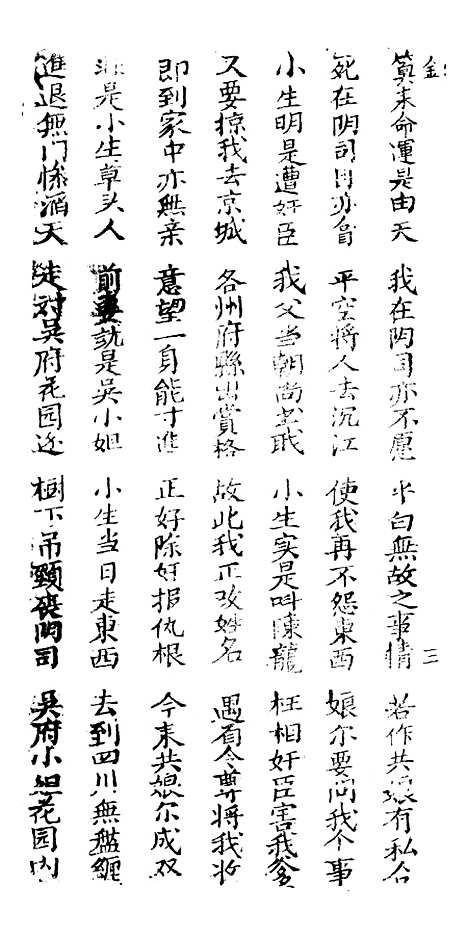 算来命運是由天 我在阴司亦不愿 半白無故之事情 若作共娘有私合
死在阴司目亦旨 平空將人去沉江 使我再不怨東西 娘尔要问我个事
小生明是遭奸臣 我父当朝尚书戢 小生实是呌陳龍 枉相奸臣害我爹
又要掠我去京城 各州府縣出賞格 故此我正改姓名 遇着令尊將我收
即到家中亦無亲 意望一身能寸進 正好除奸报仇根 今来共娘尔成双
是小生草头人 前妻就是吳小姐 小生当日走東西 去到四川無盤纏
進退無门慘滔天 走对吳府花园近 樹下吊頸磋阴司 吳府小姐花园内
三